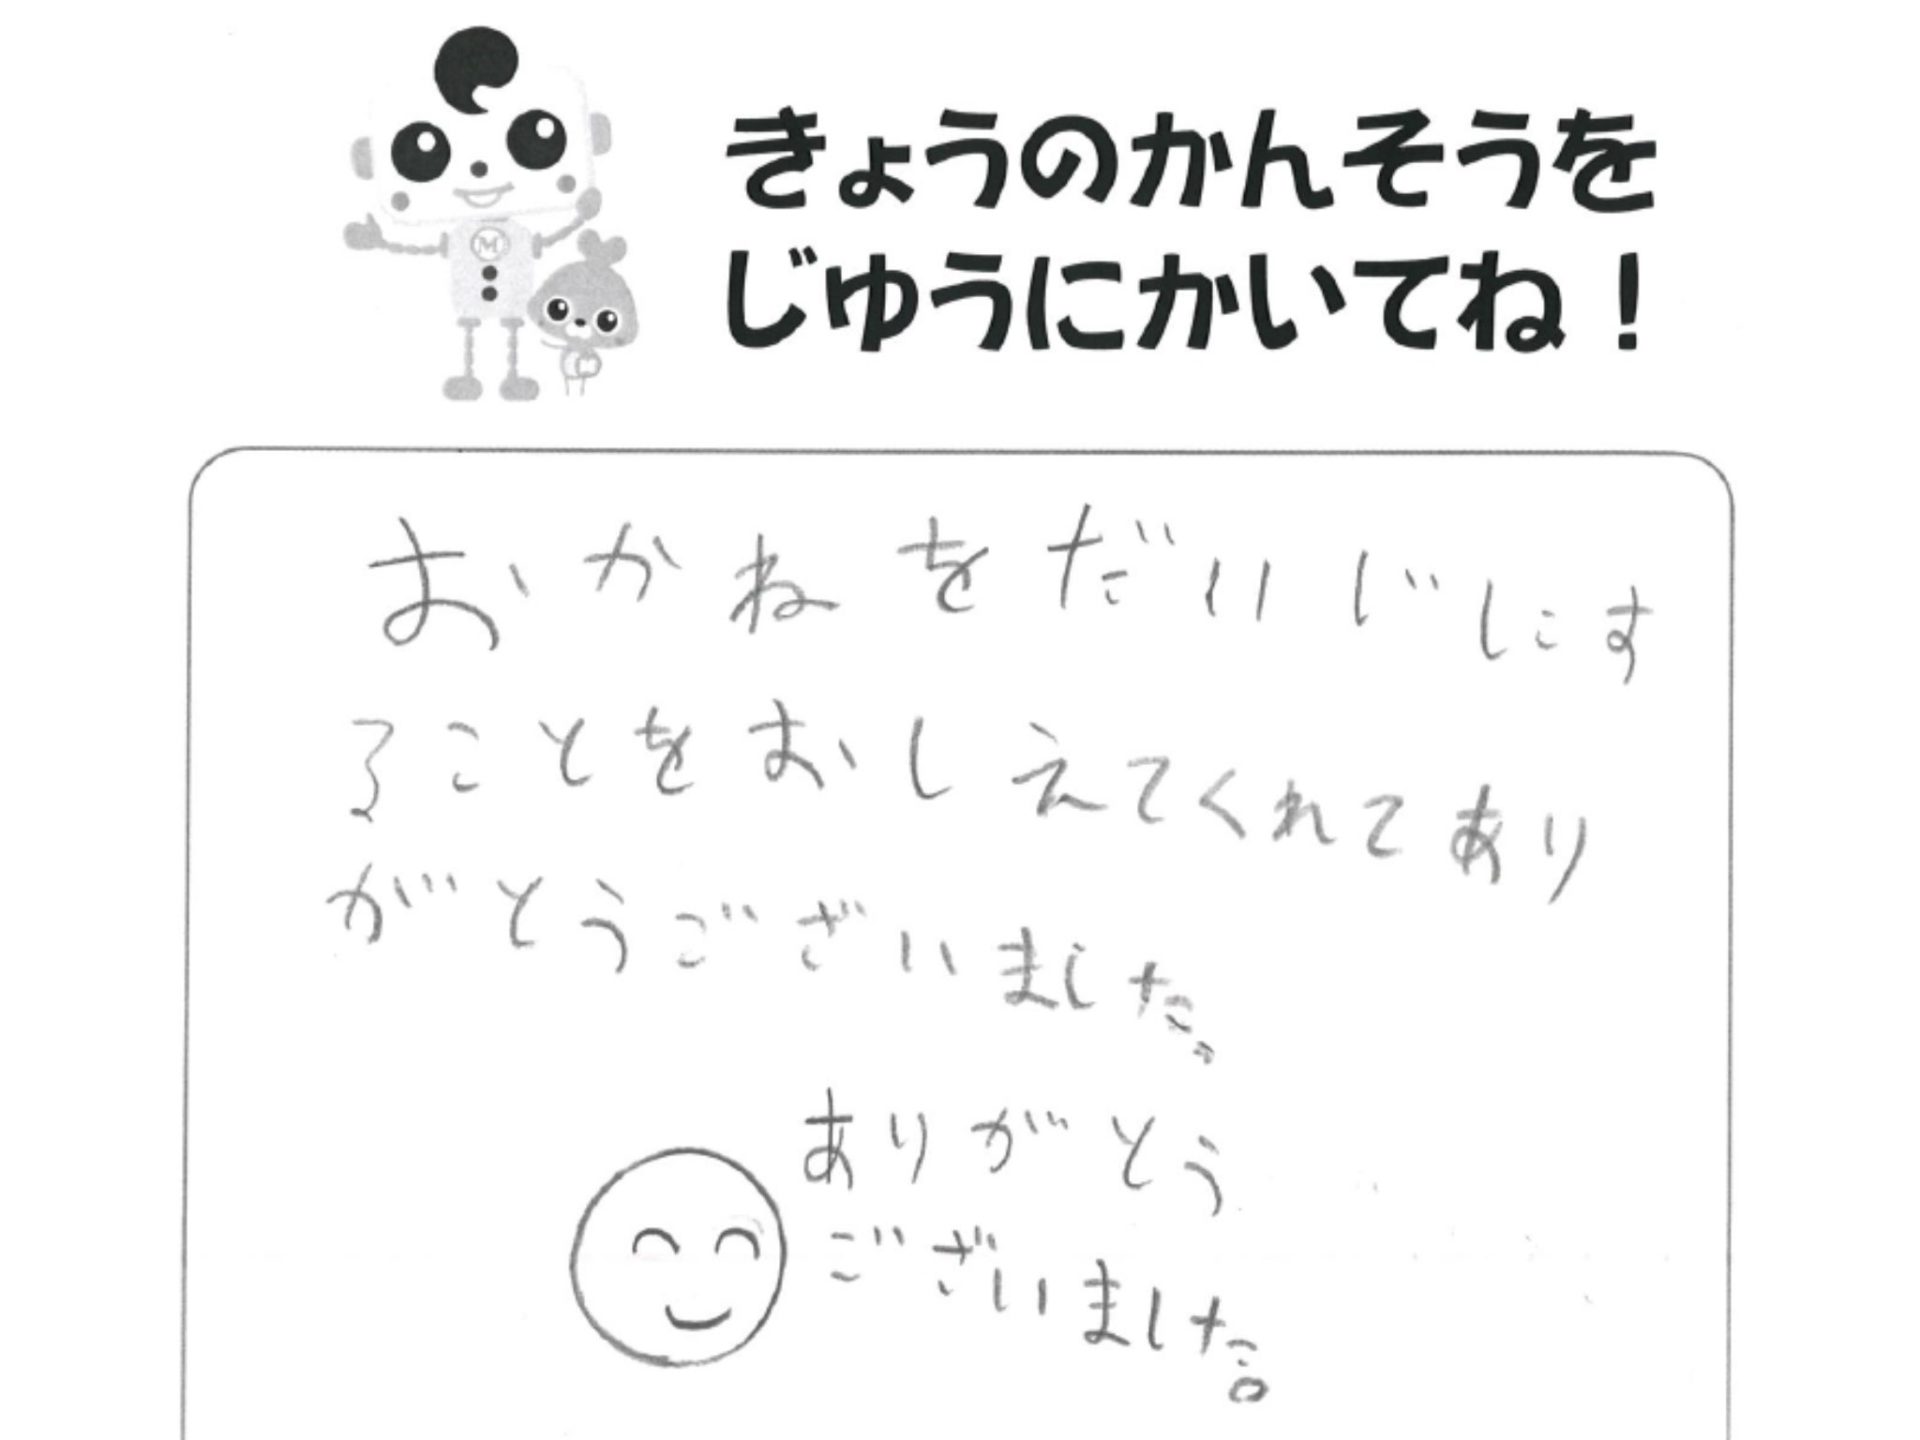 きょうのかんそうを
じゆうにかいてね！
M
おかねをだいじにす
ることをおしえてくれてあり
がとうございました。
ありがとう
ございました。